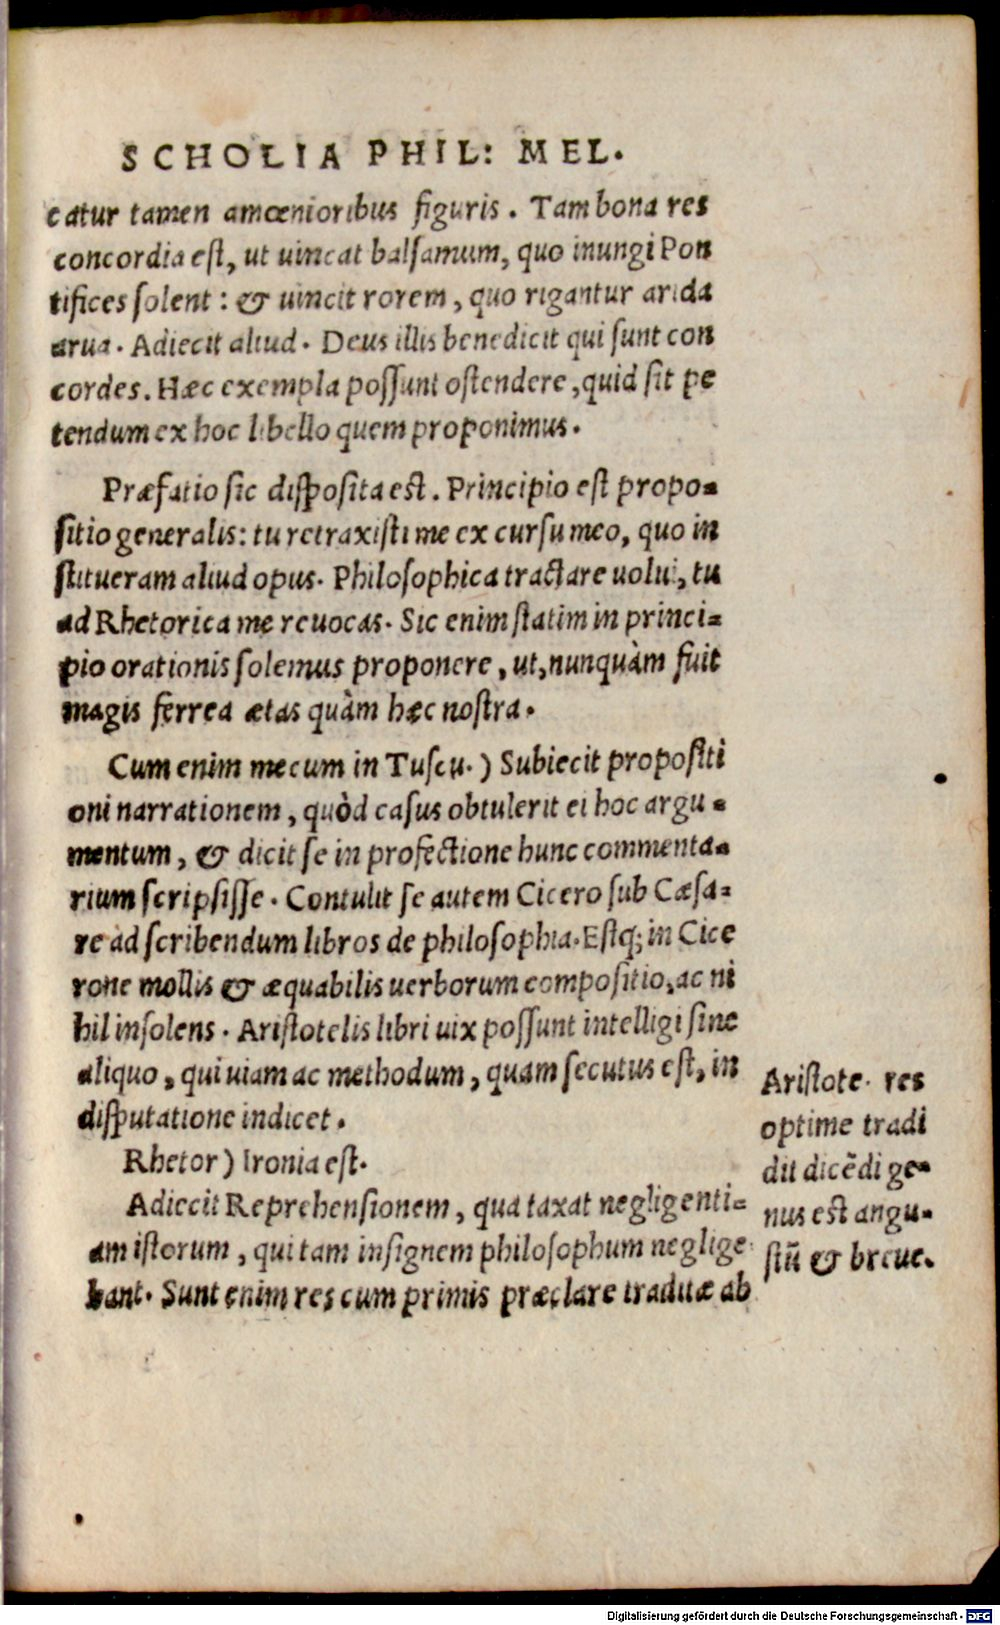 SCHOLIA PHIL: MEL.
catur tamen amœnioribus figuris. Tam bona res
concordia est, ut uincat balsamum, quo inungi Pon
tifices solent: & uincit rorem, quo rigantur arida
arua. Adiecit aliud. Deus illis benedicit qui sunt con
cordes. Hæc exempla possunt ostendere, quid sit pe
tendum ex hoc libello quem proponimus.
Præfatio sic disposita est. Principio est propo=
sitio generalis: tu retraxisti me ex cursu meo, quo in
stitueram aliud opus. Philosophica tractare uolui, tu
ad Rhetorica me reuocas. Sic enim statim in princi=
pio orationis solemus proponere, ut, nunquàm fuit
magis ferrea ætas quàm hæc nostra.
Cum enim mecum in Tuscu.) Subiecit propositi
oni narrationem, quòd casus obtulerit ei hoc argu=
mentum, & dicit se in profectione hunc commenta=
rium scripsisse. Contulit se autem Cicero sub Cæsa=
re ad scribendum libros de philosophia. Estq; in Cice
rone mollis & æquabilis uerborum compositio, ac ni
hil insolens. Aristotelis libri uix possunt intelligi sine
aliquo, qui uiam ac methodum, quam secutus est, in
disputatione indicet.
Rhetor) Ironia est.
Adiecit Reprehensionem, qua taxat negligenti=
am istorum, qui tam insignem philosophum neglige
bant. Sunt enim res cum primis præclare traditæ ab
Aristote. res
optime tradi
dit dicẽdi ge=
nus est angu=
stũ & breue.
Digitalisierung gefördert durch die Deutsche Forschungsgemeinschaft - DFG